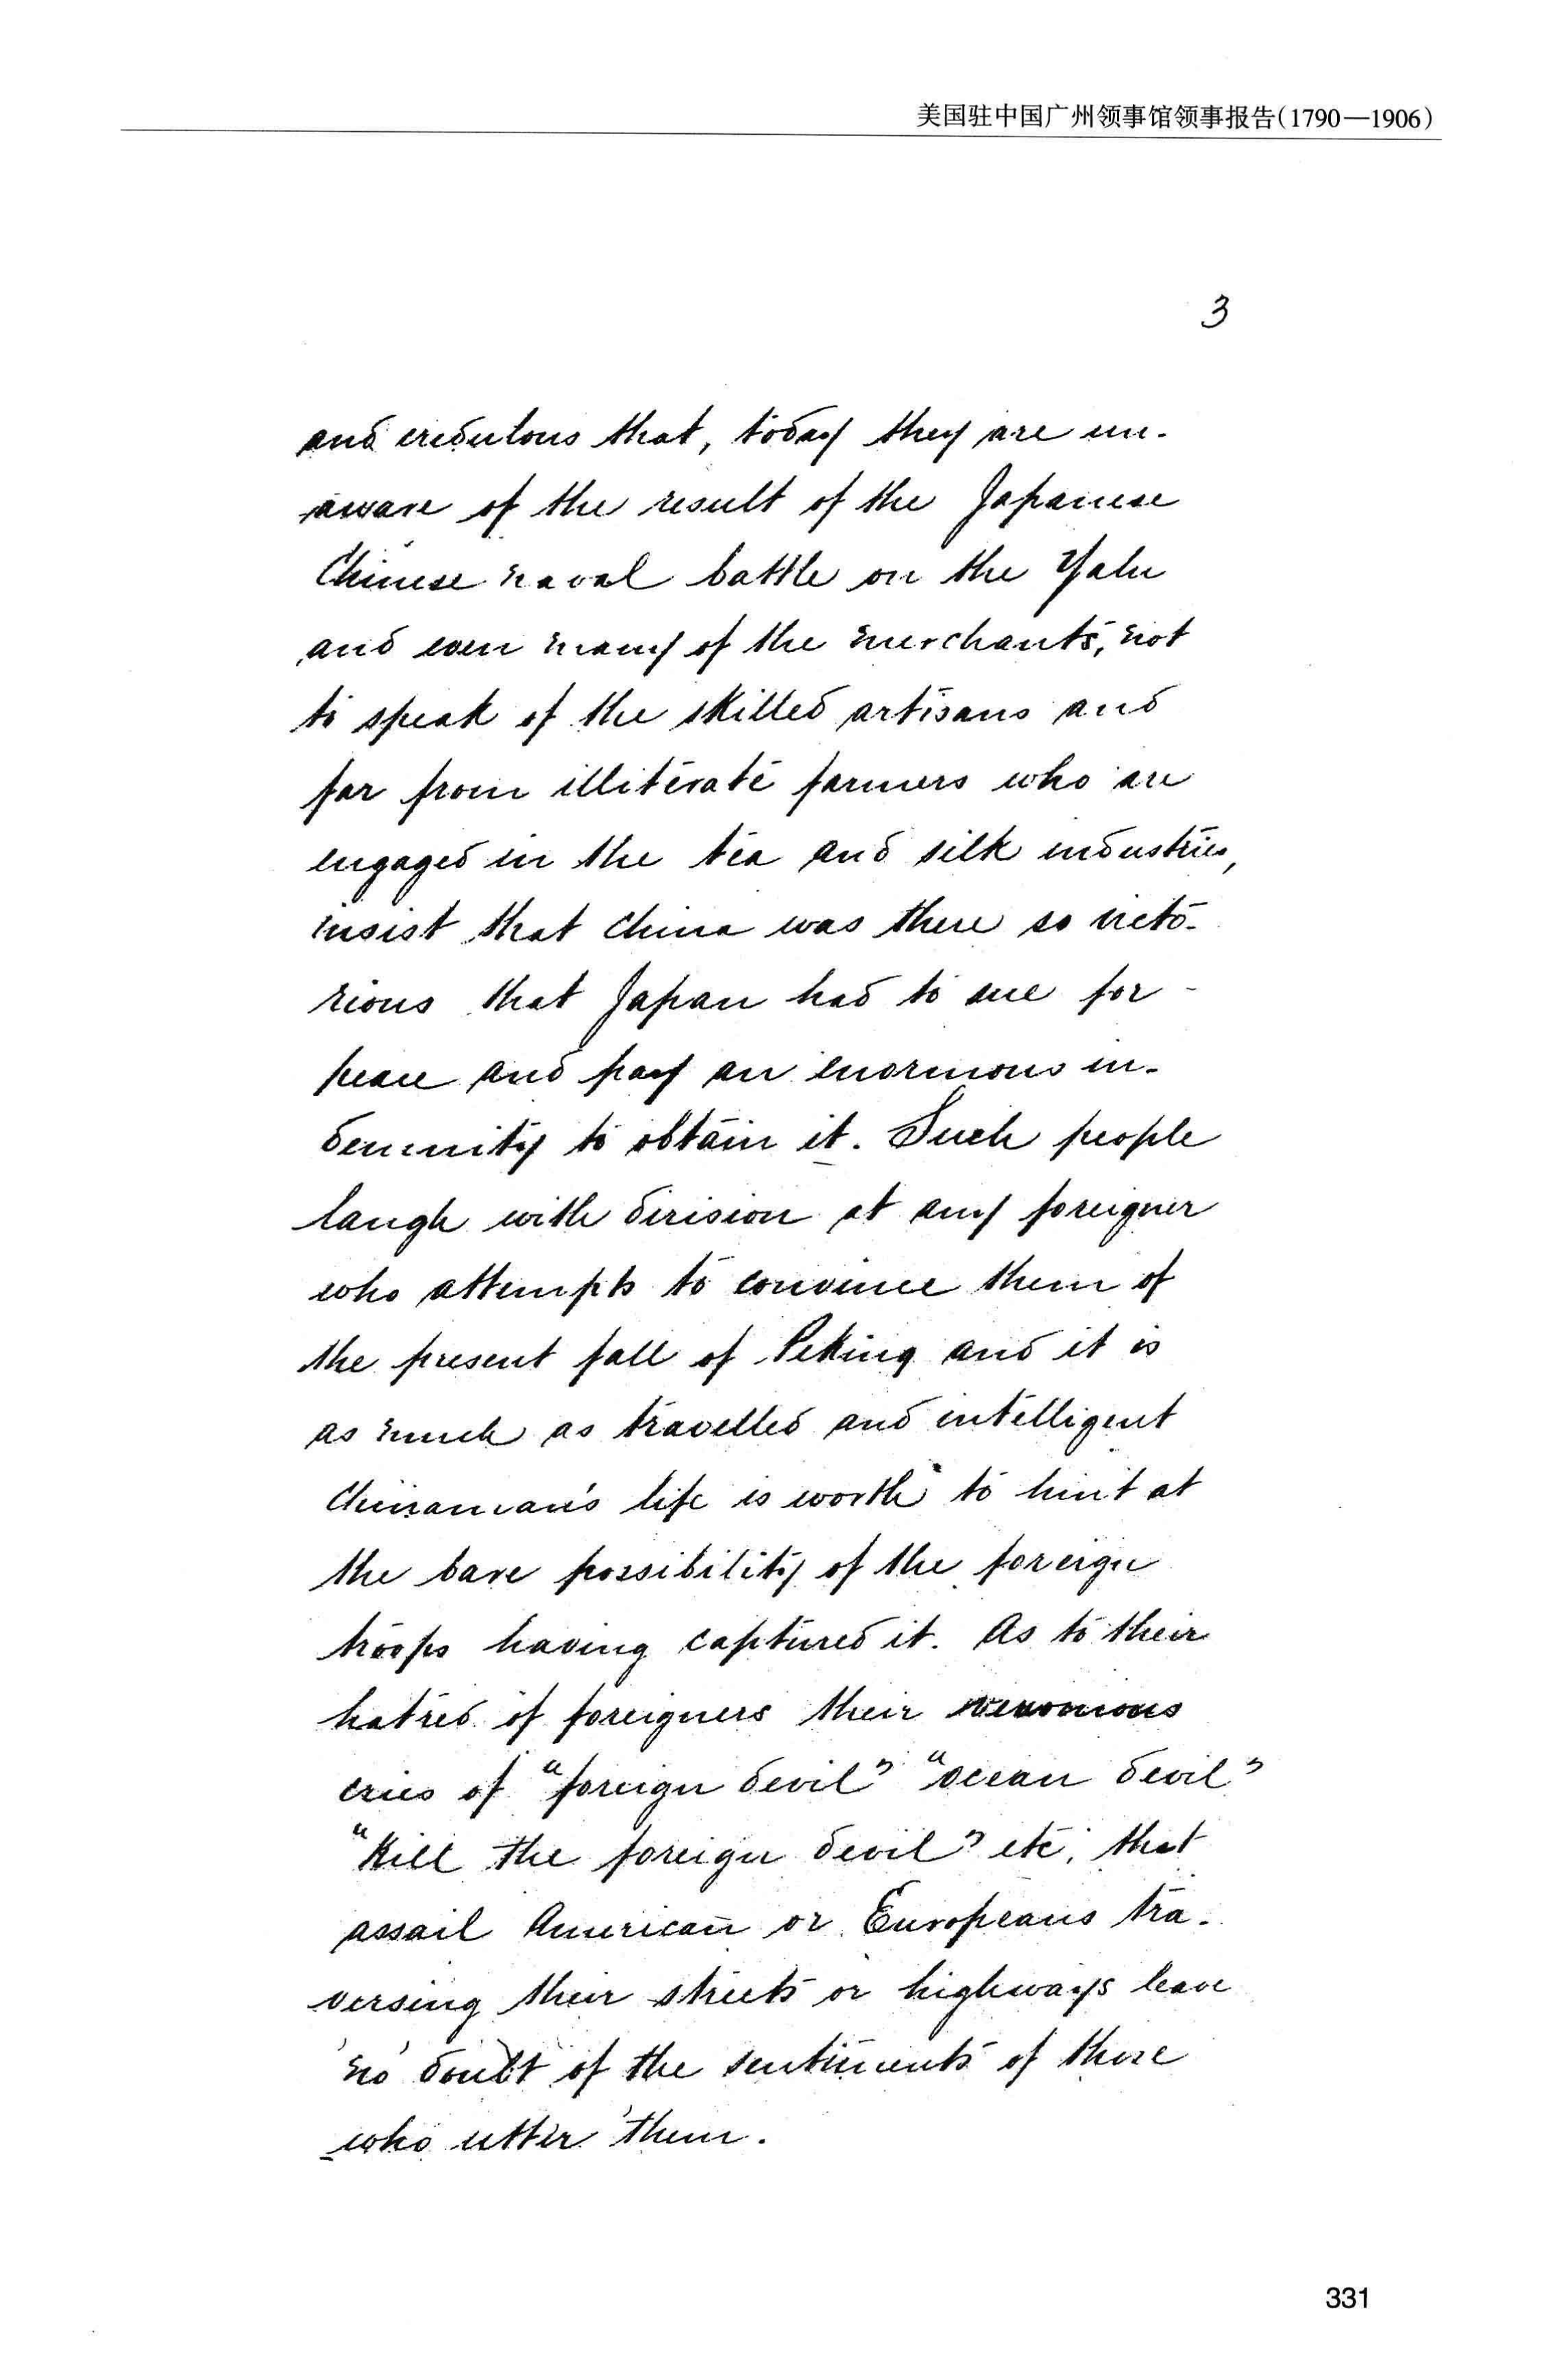 美国驻中国广州领事馆领事报告(1790—1906)
3
and credulous that, today they are un-
aware of the result of the Japanese
Chinese naval battle on the Yalu
and even many of the merchants, not
to speak of the skilled artisans and
far from illiterate farmers who are
engaged in the tea and silk industries,
insist that China was there so victo-
rious that Japan had to sue for -
peace and pay an enormous in-
demnity to obtain it. Such people
laugh with dirision at any foreigner
who attempts to convince them of
the present fall of Peking and it is
as much as travelled and intelligent
Chinaman's life is worth to hint at
the bare possibility of the foreign
troops having captured it. As to their
hatred of foreigners their venomous
cries of "foreign devil" "ocean devil"
"Kill the foreign devil" etc, that
assail American or Europeans tra-
versing their streets or highways leave
no doubt of the sentiments of those
who utter them.
331